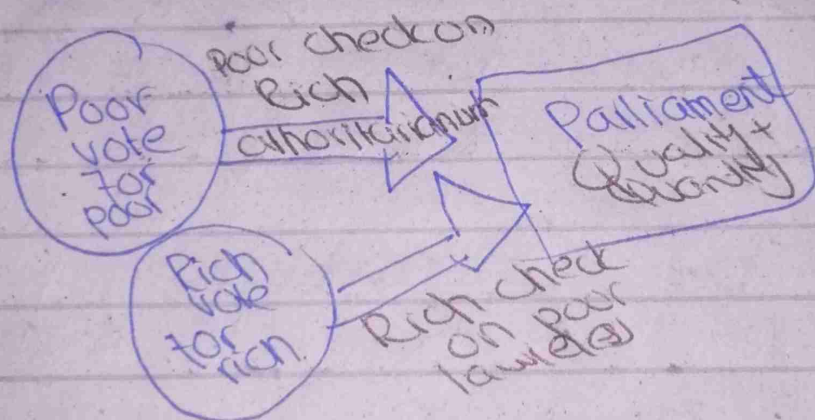 Poor
vote
for
poor
Poor check on
Rich
athoritarianism
Parliament
Quality +
Quantity
Rich
vote
for
rich
Rich check
on poor